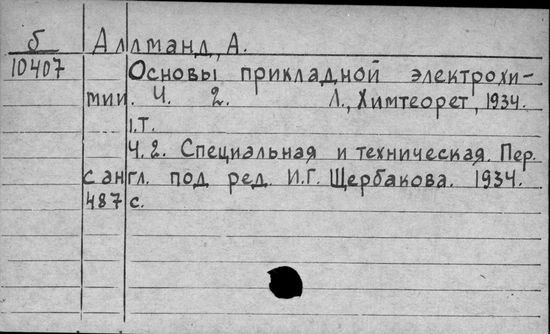 б Аллманд, А.
10407 Основы прикладной электрохи-
мии. Ч. 2. Л., Химтеорет, 1934.
1.т.
Ч.2. Специальная и техническая. Пер.
с англ. под ред. И.Г. Щербакова. 1934.
487 с.